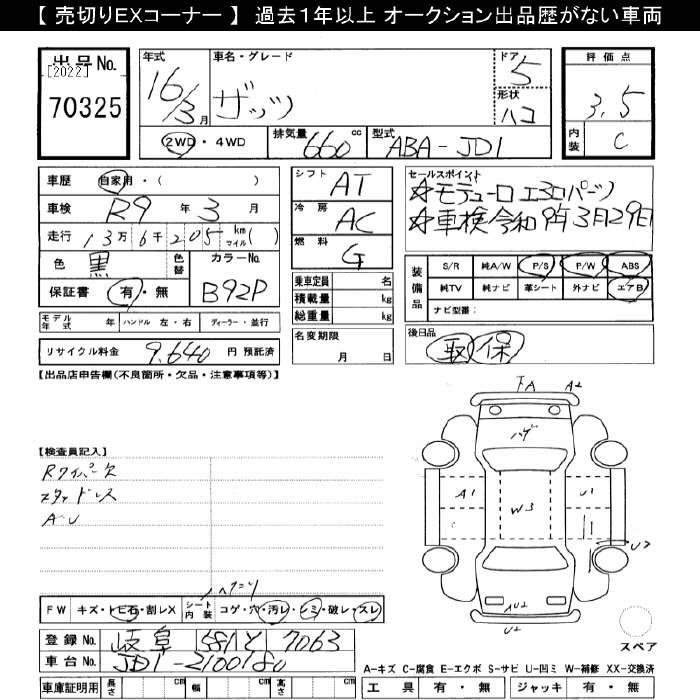 【 売切りEXコーナー 】 過去１年以上 オークション出品歴がない車両
出品No.
[2022]
70325
年式
16/3月
車名・グレード
ザッツ
ドア
5
形状
ハコ
評価点
3.5
内装
C
2WD・4WD
排気量 660 cc
型式 ABA-JD1
車歴 自家用・( )
車検 R9 年 3 月
走行 13万 6千 205 km マイル( )
色 黒 色替 カラーNo. B92P
保証書 有・無
モデル年式 年 ハンドル 左・右 ディーラー・並行
リサイクル料金 9,640 円 預託済
シフト AT
冷房 AC
燃料 G
乗車定員 名
積載量 kg
総重量 kg
名変期限
月 日
セールスポイント
☆モデューロエアロパーツ
☆車検令和9年3月29日
装備品
S/R 純A/W P/S P/W ABS
純TV 純ナビ 革シート 外ナビ エアB
ナビ型番：
後日品
取 保
【出品店申告欄(不良箇所・欠品・注意事項等)】
【検査員記入】
Rワイパー欠
スタッドレス
AU
FA A2
ハゲ
A1 W3 U1
U2
AU2
U2
スペア
ハクリ
FW キズ・トビ石・割レX シート内装 コゲ・穴・汚レ・シミ・破レ・スレ
登録No. 岐阜 581 と 7063
車台No. JD1-2100180
車庫証明用 長さ cm 幅 cm 高さ cm
A-キズ C-腐食 E-エクボ S-サビ U-凹ミ W-補修 XX-交換済
工具 有・無 ジャッキ 有・無